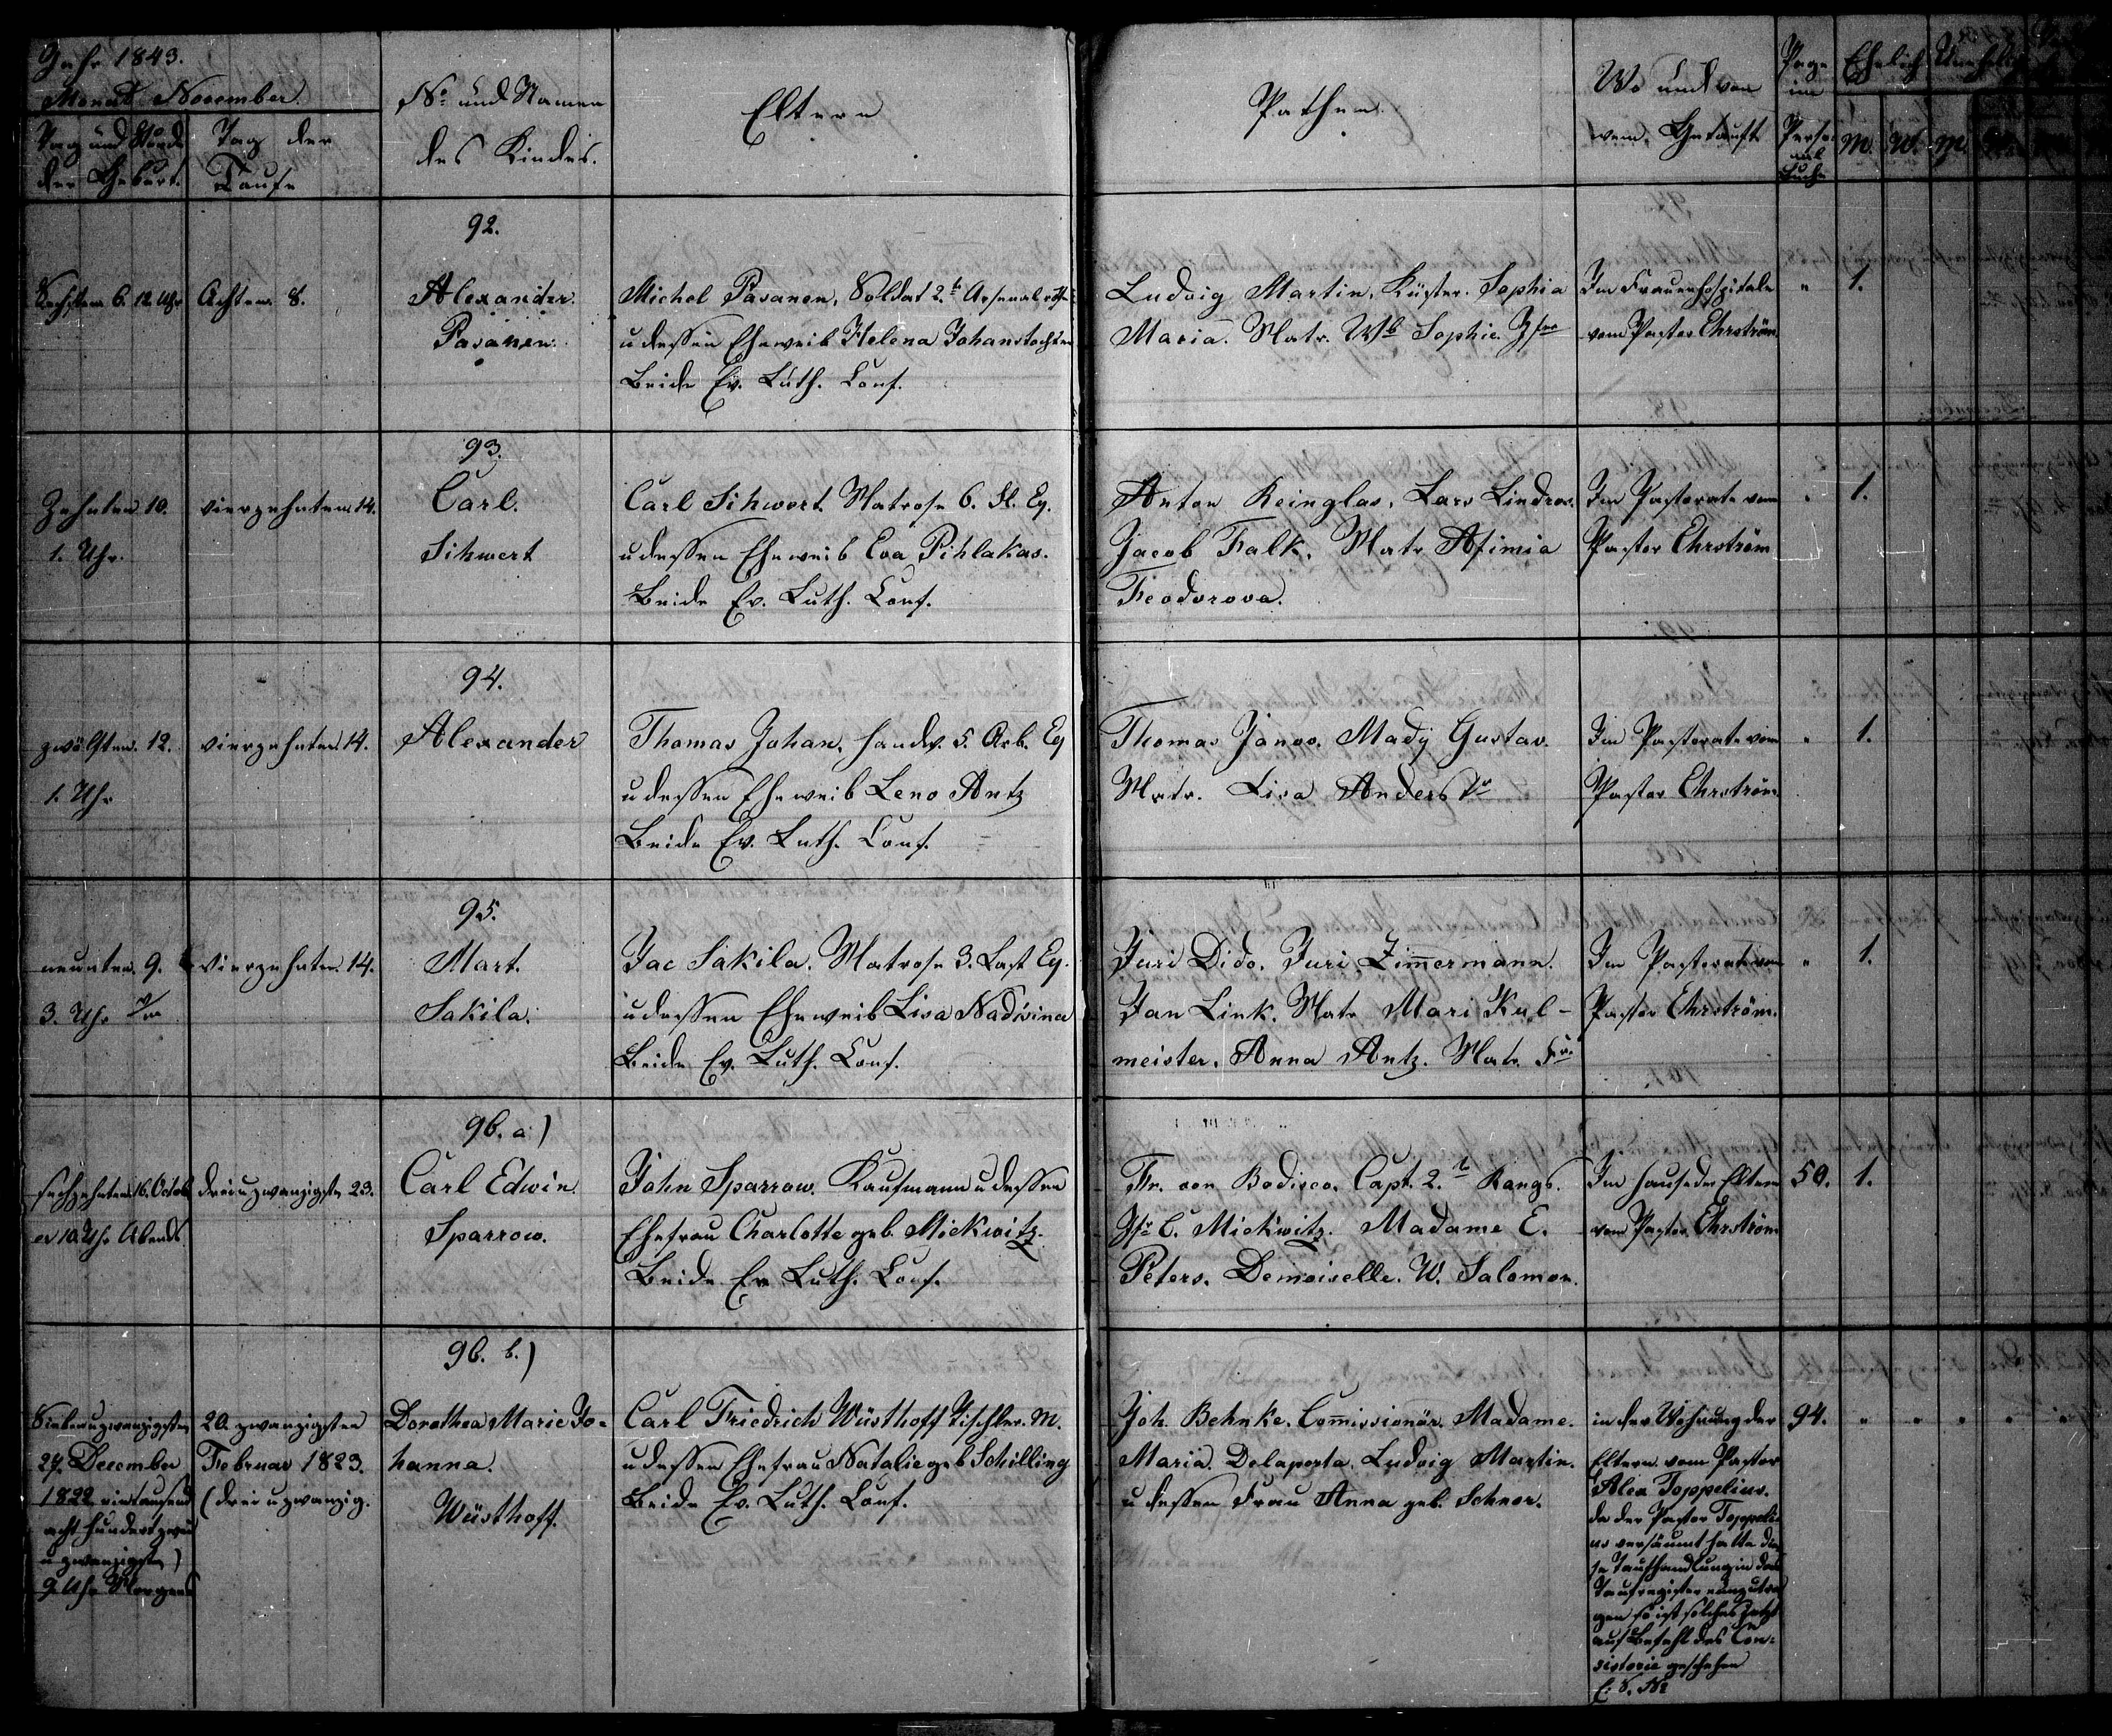 Jahr 1843.
Monat November.
Tag und Stunde
der Geburt.
Tag der
Taufe
No. und Namen
des Kindes.
Eltern
Pathen.
Wo und von
wem Getauft
Page
im
Perso-
nal
Buche
Ehelich
M.
W.
M.
92.
Sechsten 6. 12 Uhr
Achten 8.
Alexander
Pasanen.
Michel Pasanen, Soldat 2. Arsenal
u dessen Eheweib Helena Johanstochter
Beide Ev. Luth. Conf.
Ludvig Martin, Küster. Sophia
Maria. Matr. Wb Sophie
Im Frauenhospitale
vom Pastor Ehrström
" 1.
93.
Zehnten 10.
1. Uhr.
vierzehnten 14.
Carl.
Sihwert
Carl Sihwert Matrose 6. Fl. Eq.
u dessen Eheweib Eva Pihlakas.
Beide Ev. Luth. Conf.
Anton Reinglas, Lars Lindros.
Jacob Falk. Matr Afimia
Feodorova.
Im Pastorate vom
Pastor Ehrström
" 1.
94.
zwölften 12.
1. Uhr
vierzehnten 14.
Alexander
Thomas Johan, Handw. 5. Arb. Eq
u dessen Eheweib Leno Antz
Beide Ev. Luth. Conf.
Thomas Janos. Mady Gustav.
Matr. Lisa Anders Tr
Im Pastorate vom
Pastor Ehrström
" 1.
95.
neunten 9.
3. Uhr
vierzehnten 14.
Mart.
Sakila.
Jac Sakila. Matrose 3. Last Eq.
u dessen Eheweib Lisa Nadisina
Beide Ev. Luth. Conf.
Juri Dido. Juri Zimmermann.
Jan Link. Matr Mari Kul-
meister. Anna Antz. Matr. Fr.
Im Pastorate vom
Pastor Ehrström.
" 1.
96. a.)
sechzehnten 16. Octob
er 10 Uhr Abends
dreiuzwanzigsten 23.
Carl Edwin
Sparrow.
John Sparrow. Kaufmann u dessen
Ehefrau Charlotte geb. Mickwitz.
Beide Ev Luth. Conf.
Fr. von Bodisco. Capt. 2. Rangs.
C. Mickwitz. Madame E.
Peters. Demoiselle. W. Salomon.
Im Hause der Eltern
vom Pastor Ehrström
50. 1.
96. b.)
Siebenuzwanzigsten
27. December
1822 eintausend
acht hundert zwei
u zwanzigsten)
9 Uhr Morgens
20. zwanzigsten
Februar 1823.
(drei uzwanzig.
Dorothea Marie Jo-
hanna.
Wüsthoff.
Carl Friedrich Wüsthoff Tischler. M.
u dessen Ehefrau Natalie geb Schilling
Beide Ev. Luth. Conf.
Joh. Behnke. Commissionär. Madame.
Maria. Delaporta. Ludvig Martin.
u dessen Frau Anna geb. Schner.
in der Wohnung der
Eltern vom Pastor
Alex Toppelius.
da der Pastor Toppeli-
us versäumt hatte die-
se Taufhandlung in das
Taufregister einzutra-
gen so ist solches jetzt
auf Befehl des Con-
sistorie geschehen
94. " " " " "